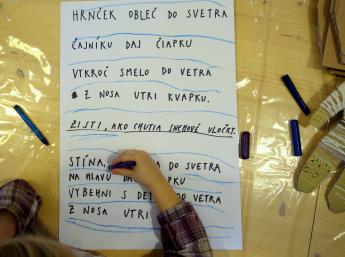 HRNČEK OBLEČ DO SVETRA
ČAJNÍKU DAJ ČIAPKU
VYKROČ SMELO DO VETRA
Z NOSA UTRI KVAPKU.
ZISTI, AKO CHUTIA SNEHOVÉ VLOČKY.
STÍNA, DO SVETRA
NA HLAVU
VYBEHNI S VETRA
Z NOSA UTRI